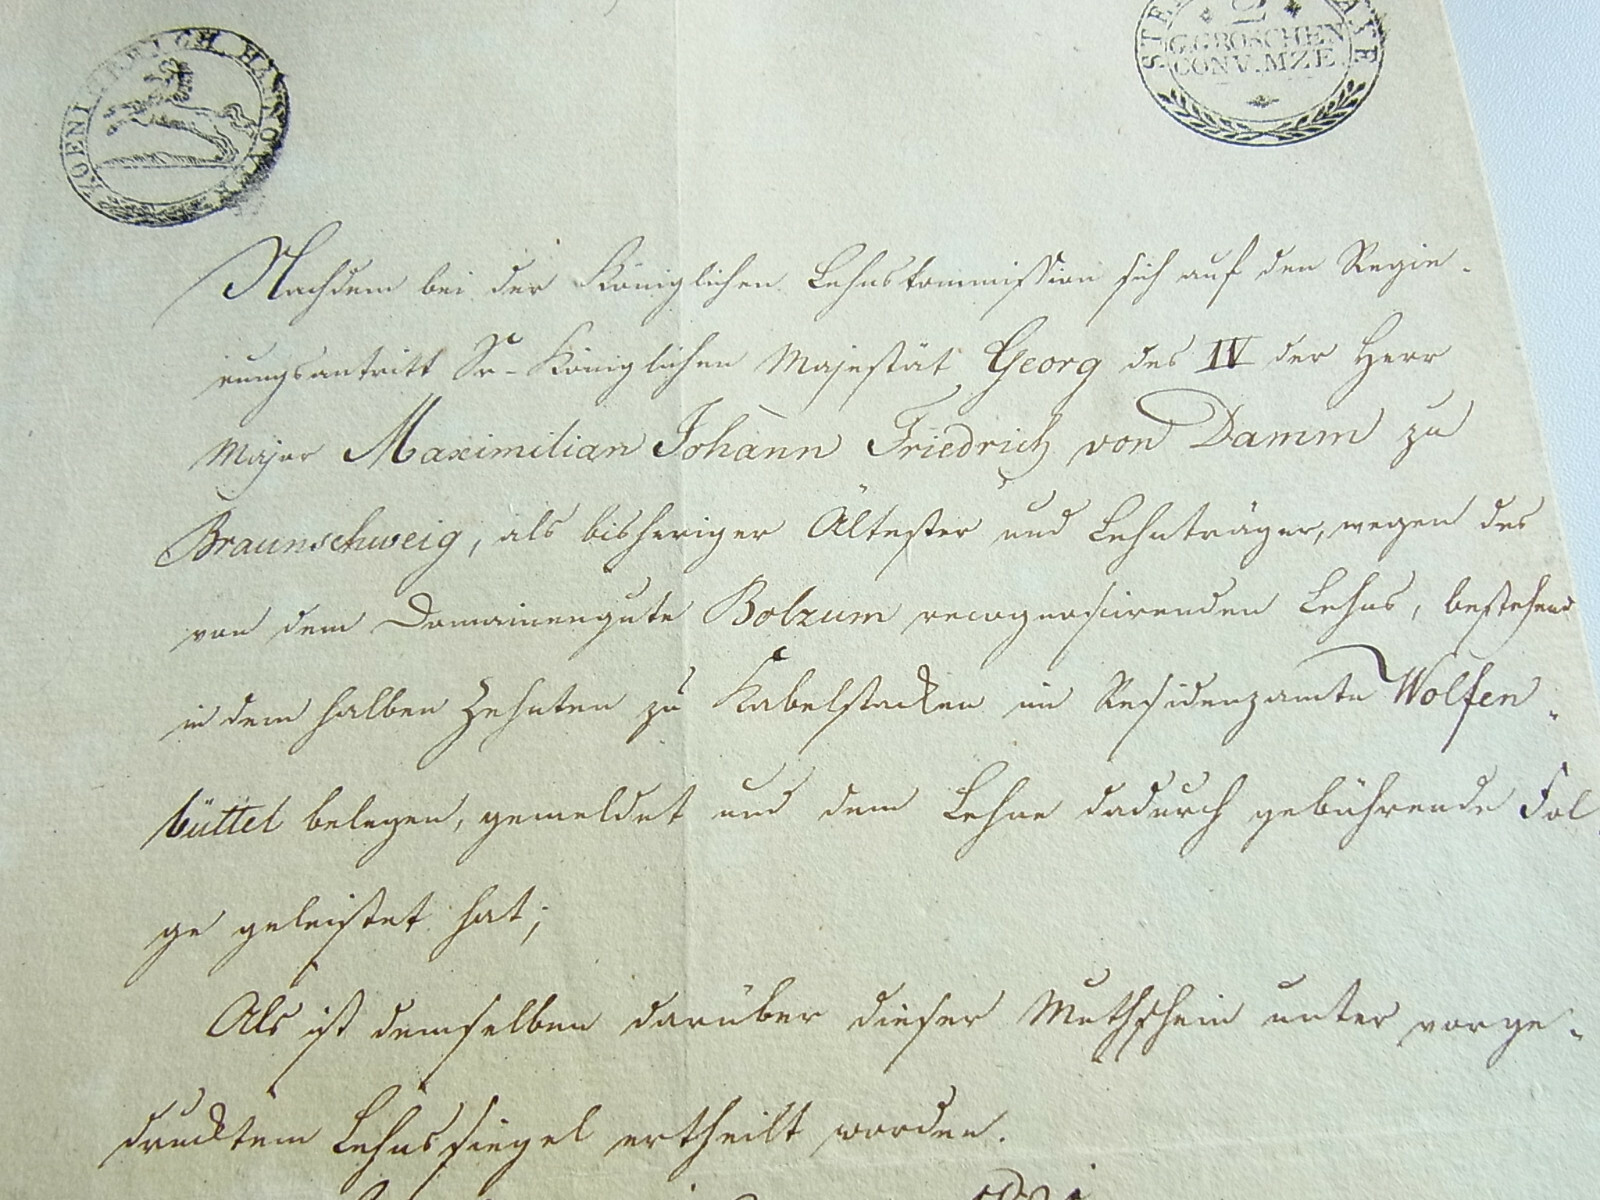 KOENIGREICH HANNOVER
2
G.GROSCHEN
CONV.MZE.
Nachdem bei der Königlichen Lehnskommission sich auf den Regie-
rungsantritt Sr. Königlichen Majestät Georg des IV der Herr
Major Maximilian Johann Friedrich von Damm zu
Braunschweig, als bisheriger Ältester und Lehnträger, wegen des
von dem Domainengute Bolzum recognoscirenden Lehns, bestehend
in dem halben Zehnten zu Kabelstacken im Residenzamte Wolfen-
büttel belegen, gemeldet und dem Lehne dadurch gebührende Fol-
ge geleistet hat;
Als ist demselben darüber dieser Muthschein unter vorge-
drucktem Lehnssiegel ertheilt worden.